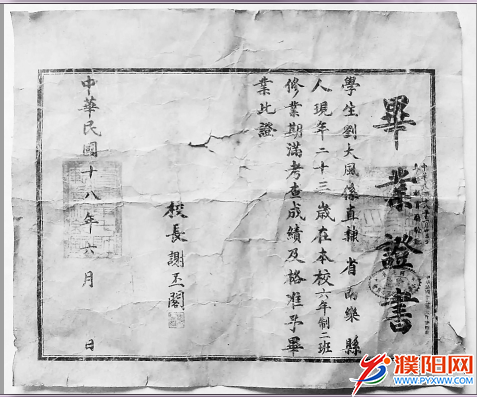 畢業證書
學生劉大風係直隸省南樂縣
人現年二十三歲在本校六年制二班
修業期滿考查成績及格准予畢
業此證
校長謝丕閣
中華民國十八年六月 日
濮阳网
www.pyxww.com